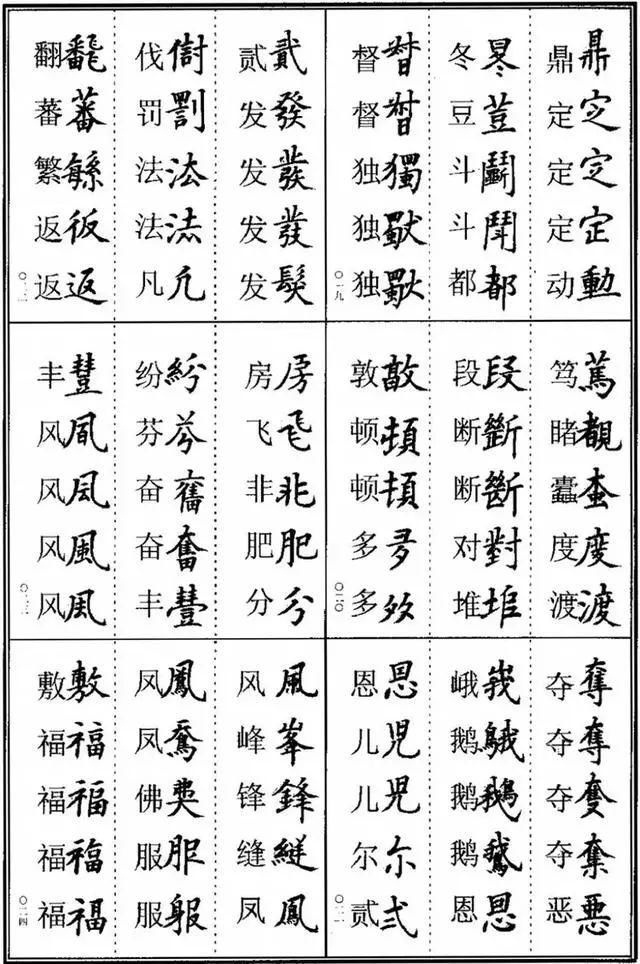 鼎鼎
定㝎
定㝎
定定
动動
冬
豆荳
斗鬭
斗鬥
都都
督督
督督
独獨
独
独
〇一九
笃篤
睹覩
蠢
度度
渡渡
段段
断斷
断斷
对對
堆堆
敦敦
顿頓
顿頓
多多
多
〇二〇
夺奪
夺奪
夺
夺
恶惡
峨峩
鹅
鹅鵝
鹅鵞
恩恩
恩恩
儿児
儿児
尔尓
贰弍
〇二一
贰貳
发發
发發
发發
发髮
伐
罚罰
法法
法
凡凢
翻飜
蕃蕃
繁
返仮
返返
〇二二
房房
飞飛
非非
肥肥
分分
纷紛
芬芬
奋奮
奋奮
丰豐
丰豐
风凮
风凨
风風
风風
〇二三
风風
峰峯
锋鋒
缝縫
凤鳳
凤鳳
凤
佛
服服
服
敷敷
福福
福福
福福
福福
〇二四